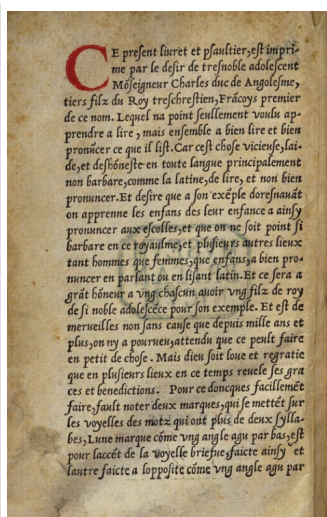 CE present liuret et psaultier,est impri-
me par le desir de tresnoble adolescent
Mõseigneur Charles duc de Angolesme,
tiers filz du Roy treschrestien,Frãcoys premier
de ce nom. Lequel na point seulement voulu ap-
prendre a lire , mais ensemble a bien lire et bien
pronũcer ce que il list. Car cest chose vicieuse,lai-
de,et deshõneste en toute langue principalement
non barbare,comme la latine,de lire, et non bien
pronuncer.Et desire que a son exẽple doresnauãt
on apprenne les enfans des leur enfance a ainsy
pronuncer aux escolles,et que on ne soit point si
barbare en ce royaulme,et plusieurs autres lieux
tant hommes que femmes,que enfans,a bien pro-
nuncer en parlant ou en lisant latin.Et ce sera a
grãt hõneur a vng chascun auoir vng filz de roy
de si noble adolescẽce pour son exemple. Et est de
merueilles non sans cause que depuis mille ans et
plus,on ny a pourueu,attendu que ce peult faire
en petit de chose . Mais dieu soit loue et regratie
que en plusieurs lieux en ce temps reuele ses gra
ces et benedictions. Pour ce doncques facillemẽt
faire,fault noter deux marques,qui se mettẽt sur
les voyelles des motz qui ont plus de deux sylla-
bes,Lune marque cõme vng angle agu par bas,est
pour laccẽt de la voyelle briefue,faicte ainsy et
lautre faicte a lopposite cõme vng angle agu par